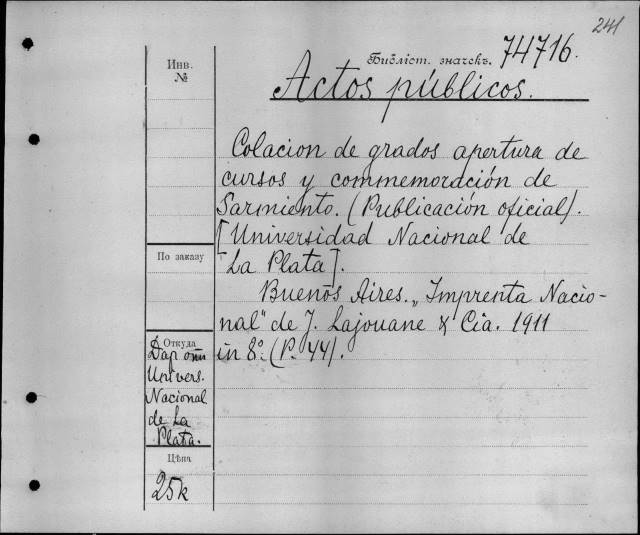 241
Библіот. значекъ. 74716.
Инв.
№
Actos públicos.
Colacion de grados apertura de
cursos y commemoración de
Sarmiento. (Publicación oficial).
[Universidad Nacional de
La Plata].
По заказу
Buenos Aires. „Imprenta Nacio-
nal" de J. Lajouane & Cia. 1911
in 8º. (P. 44).
Откуда
Даръ отъ
Univers.
Nacional
de La
Plata.
Цѣна
25к